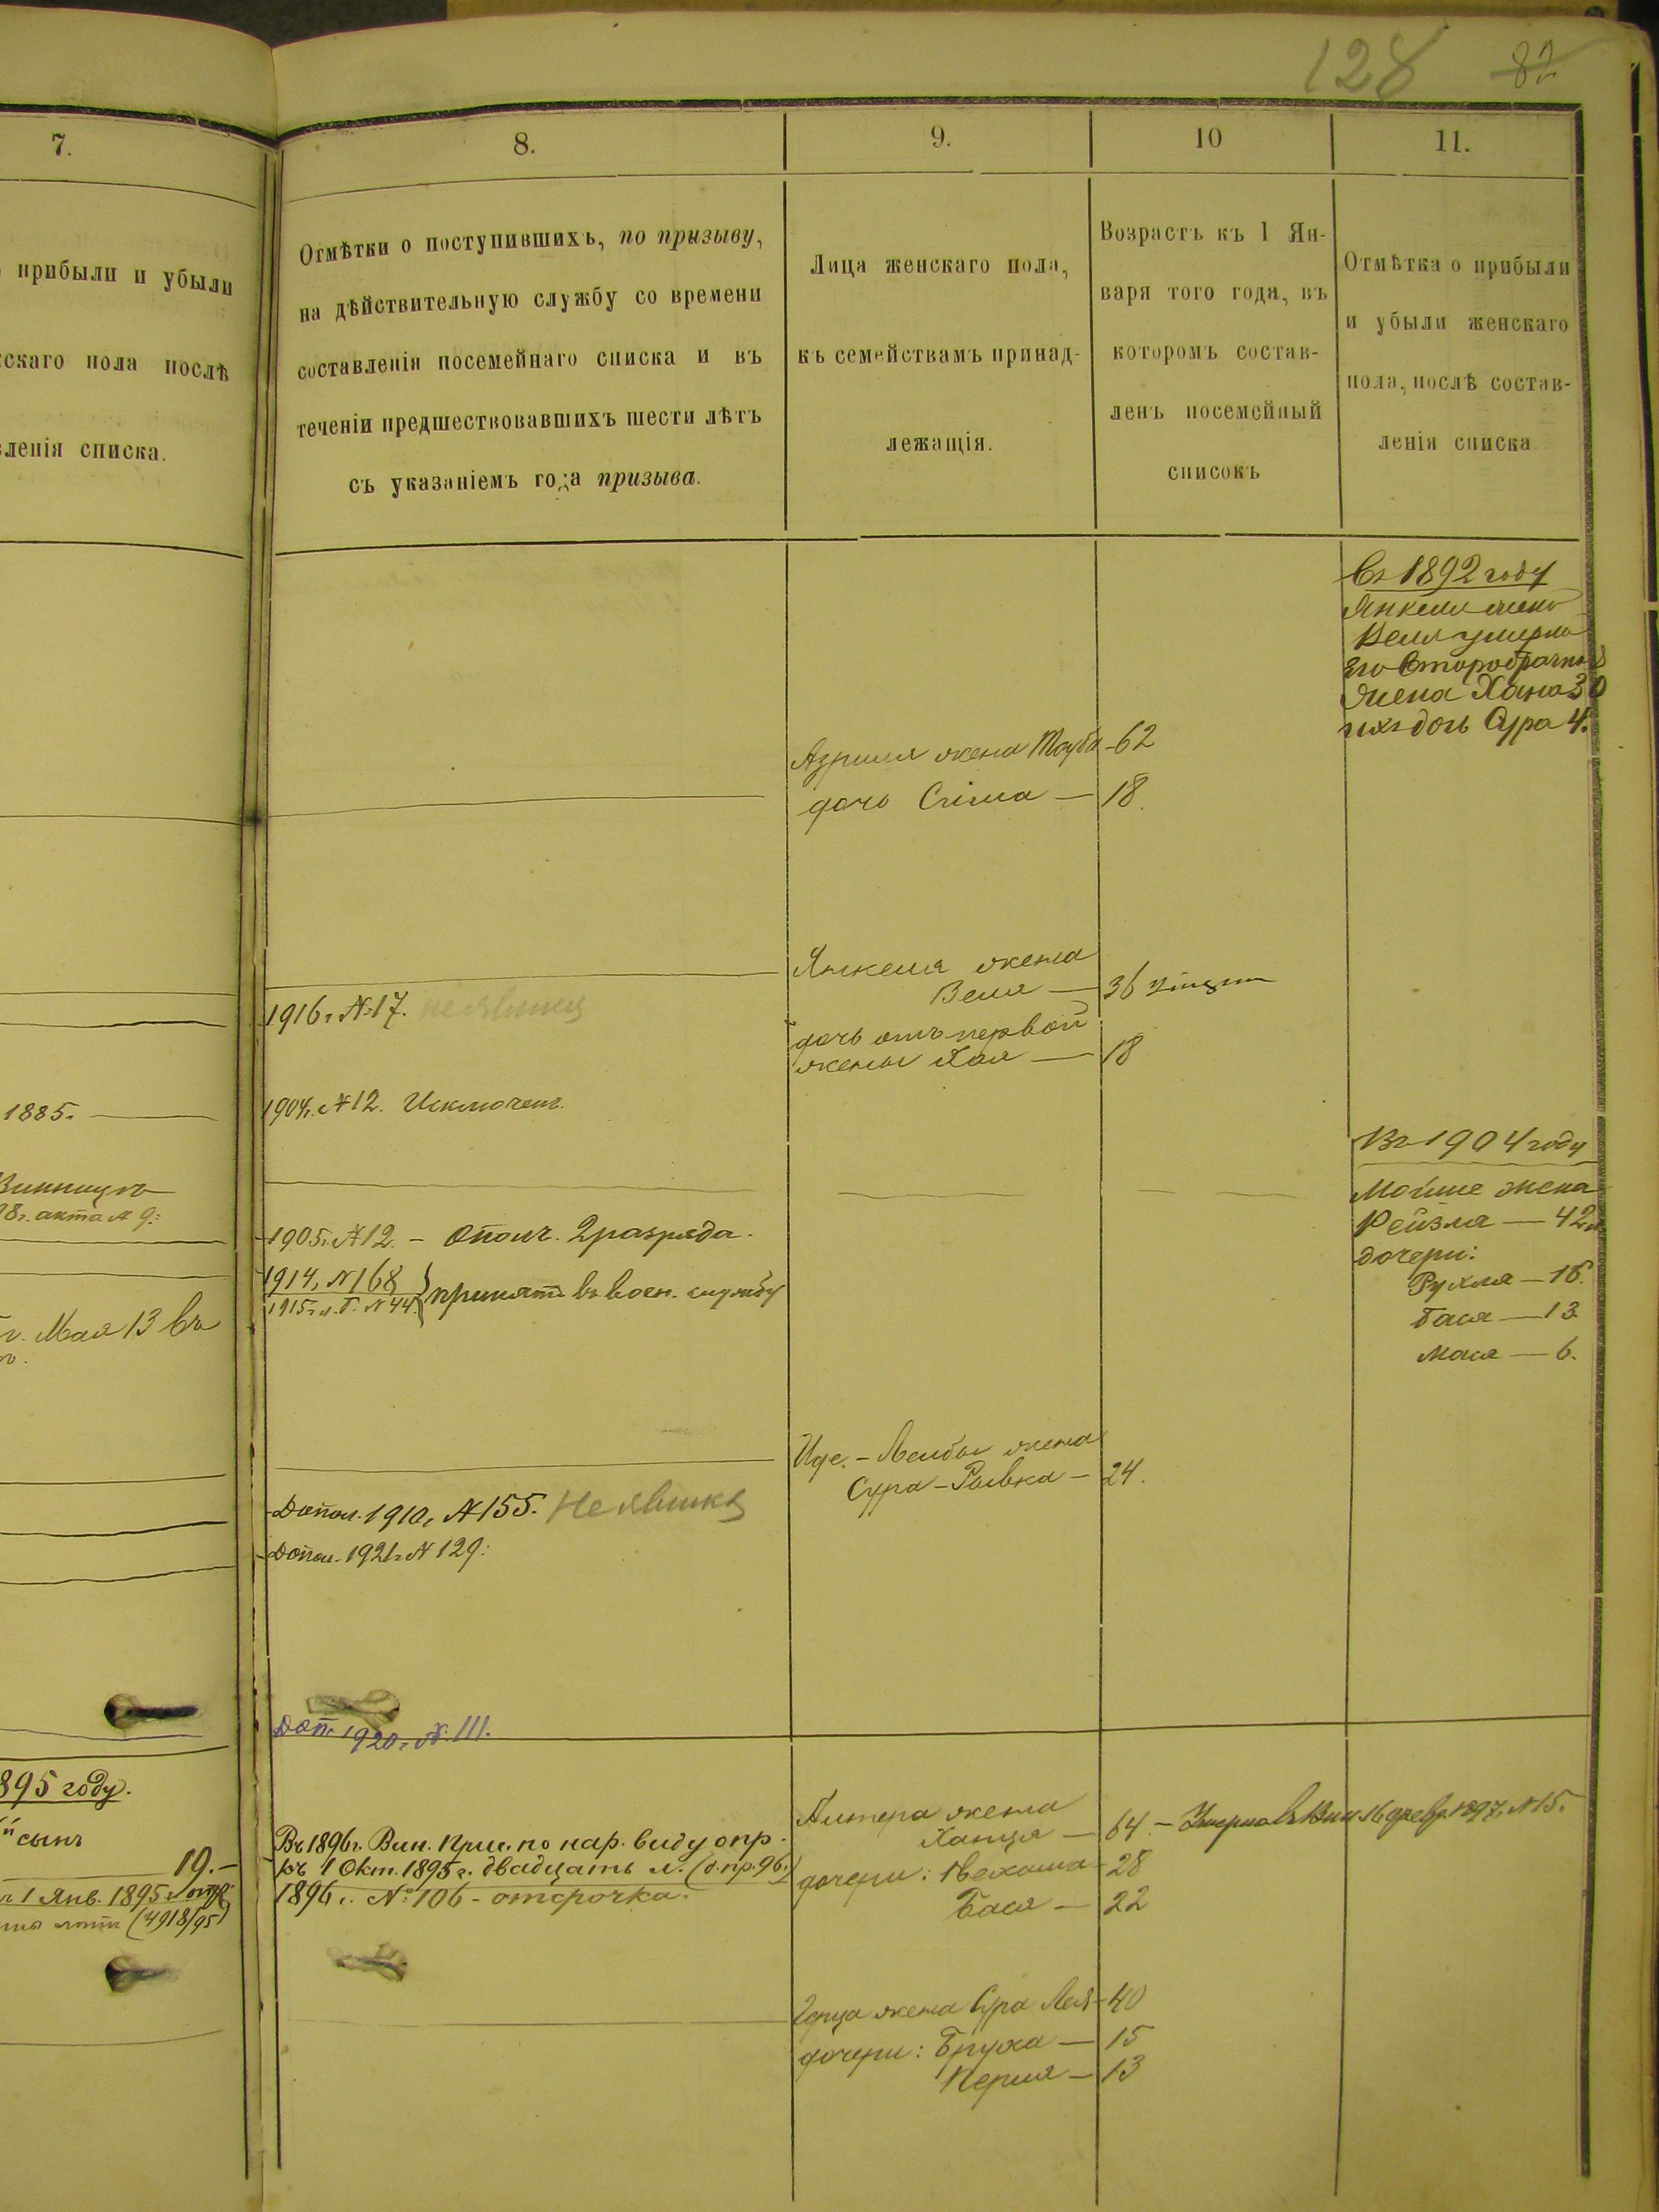 128 82
7.
прибыли и убыли
скаго пола послѣ
вленія списка.
1885.
Винницѣ
98г. акта № 9:
г. Мая 13 въ
895 году.
й сынъ
19.-
1 Янв. 1895 г.
(4918/95)
8.
Отмѣтки о поступившихъ, по призыву,
на дѣйствительную службу со времени
составленія посемейнаго списка и въ
теченіи предшествовавшихъ шести лѣтъ
съ указаніемъ года призыва.
1916 г. №17. неявился
1904г. №12. Исключенъ.
1905г. №12. - Ополч. 2 разряда.
1914 г. №168
1915 г. №44. } принятъ въ воен. службу
Допол. 1910 г. №155. Неявился
Допол. 1921г. № 129:
Доп. 1920 г. №. 111.
Въ 1896г. Вин. Прис. по нар. виду опр.
къ 1 Окт. 1895 г. двадцать л. (д. пр. 96.)
1896 г. №106 - отсрочка.
9.
Лица женскаго пола,
къ семействамъ принад-
лежащія.
Азриля жена Тауба
дочь Сима —
Янкеля жена
Веля —
дочь отъ первой
жены Хая —
Иде.-Лейбы жена
Сура-Рывка —
Алтера жена
Ханця —
дочери:
Бася —
Герца жена Сура Лея
дочери: Бруха —
Перля —
10
Возрастъ къ 1 Ян-
варя того года, въ
которомъ состав-
ленъ посемейный
списокъ
62
18.
36
18
24.
64. - Умерла въ Вин. 16 февр. 1897 г. №15.
28
22
40
15
13
11.
Отмѣтка о прибыли
и убыли женскаго
пола, послѣ состав-
ленія списка
Въ 1892 году
Янкеля жена
Веля умерла
Его второбрачная
жена Хана 30
ихъ дочь Сура 4.
Въ 1904 году
Мойше жена
Рейзля — 42 л
дочери:
Рухля — 16.
Бася — 13
Мася — 6.